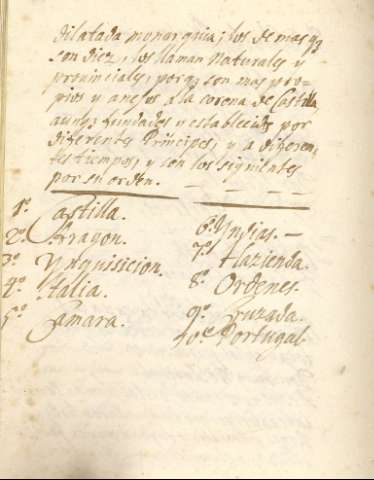 dilatada monarquia; los de mas q̃
son diez, los llaman Naturales y
provinciales, porq̃ son mas pro=
pios y anejos a la corona de Castilla,
aunq̃ fundados y establecidos por
diferentes Principes, y a diferen-
tes tiempos, y son los siguientes
por su orden.
1º. Castilla.
2º. Aragon.
3º Ynquisicion.
4º. Italia.
5º Camara.
6º. Yndias. —
7º Hazienda.
8º Ordenes.
9º. Cruzada.
10º Portugal.